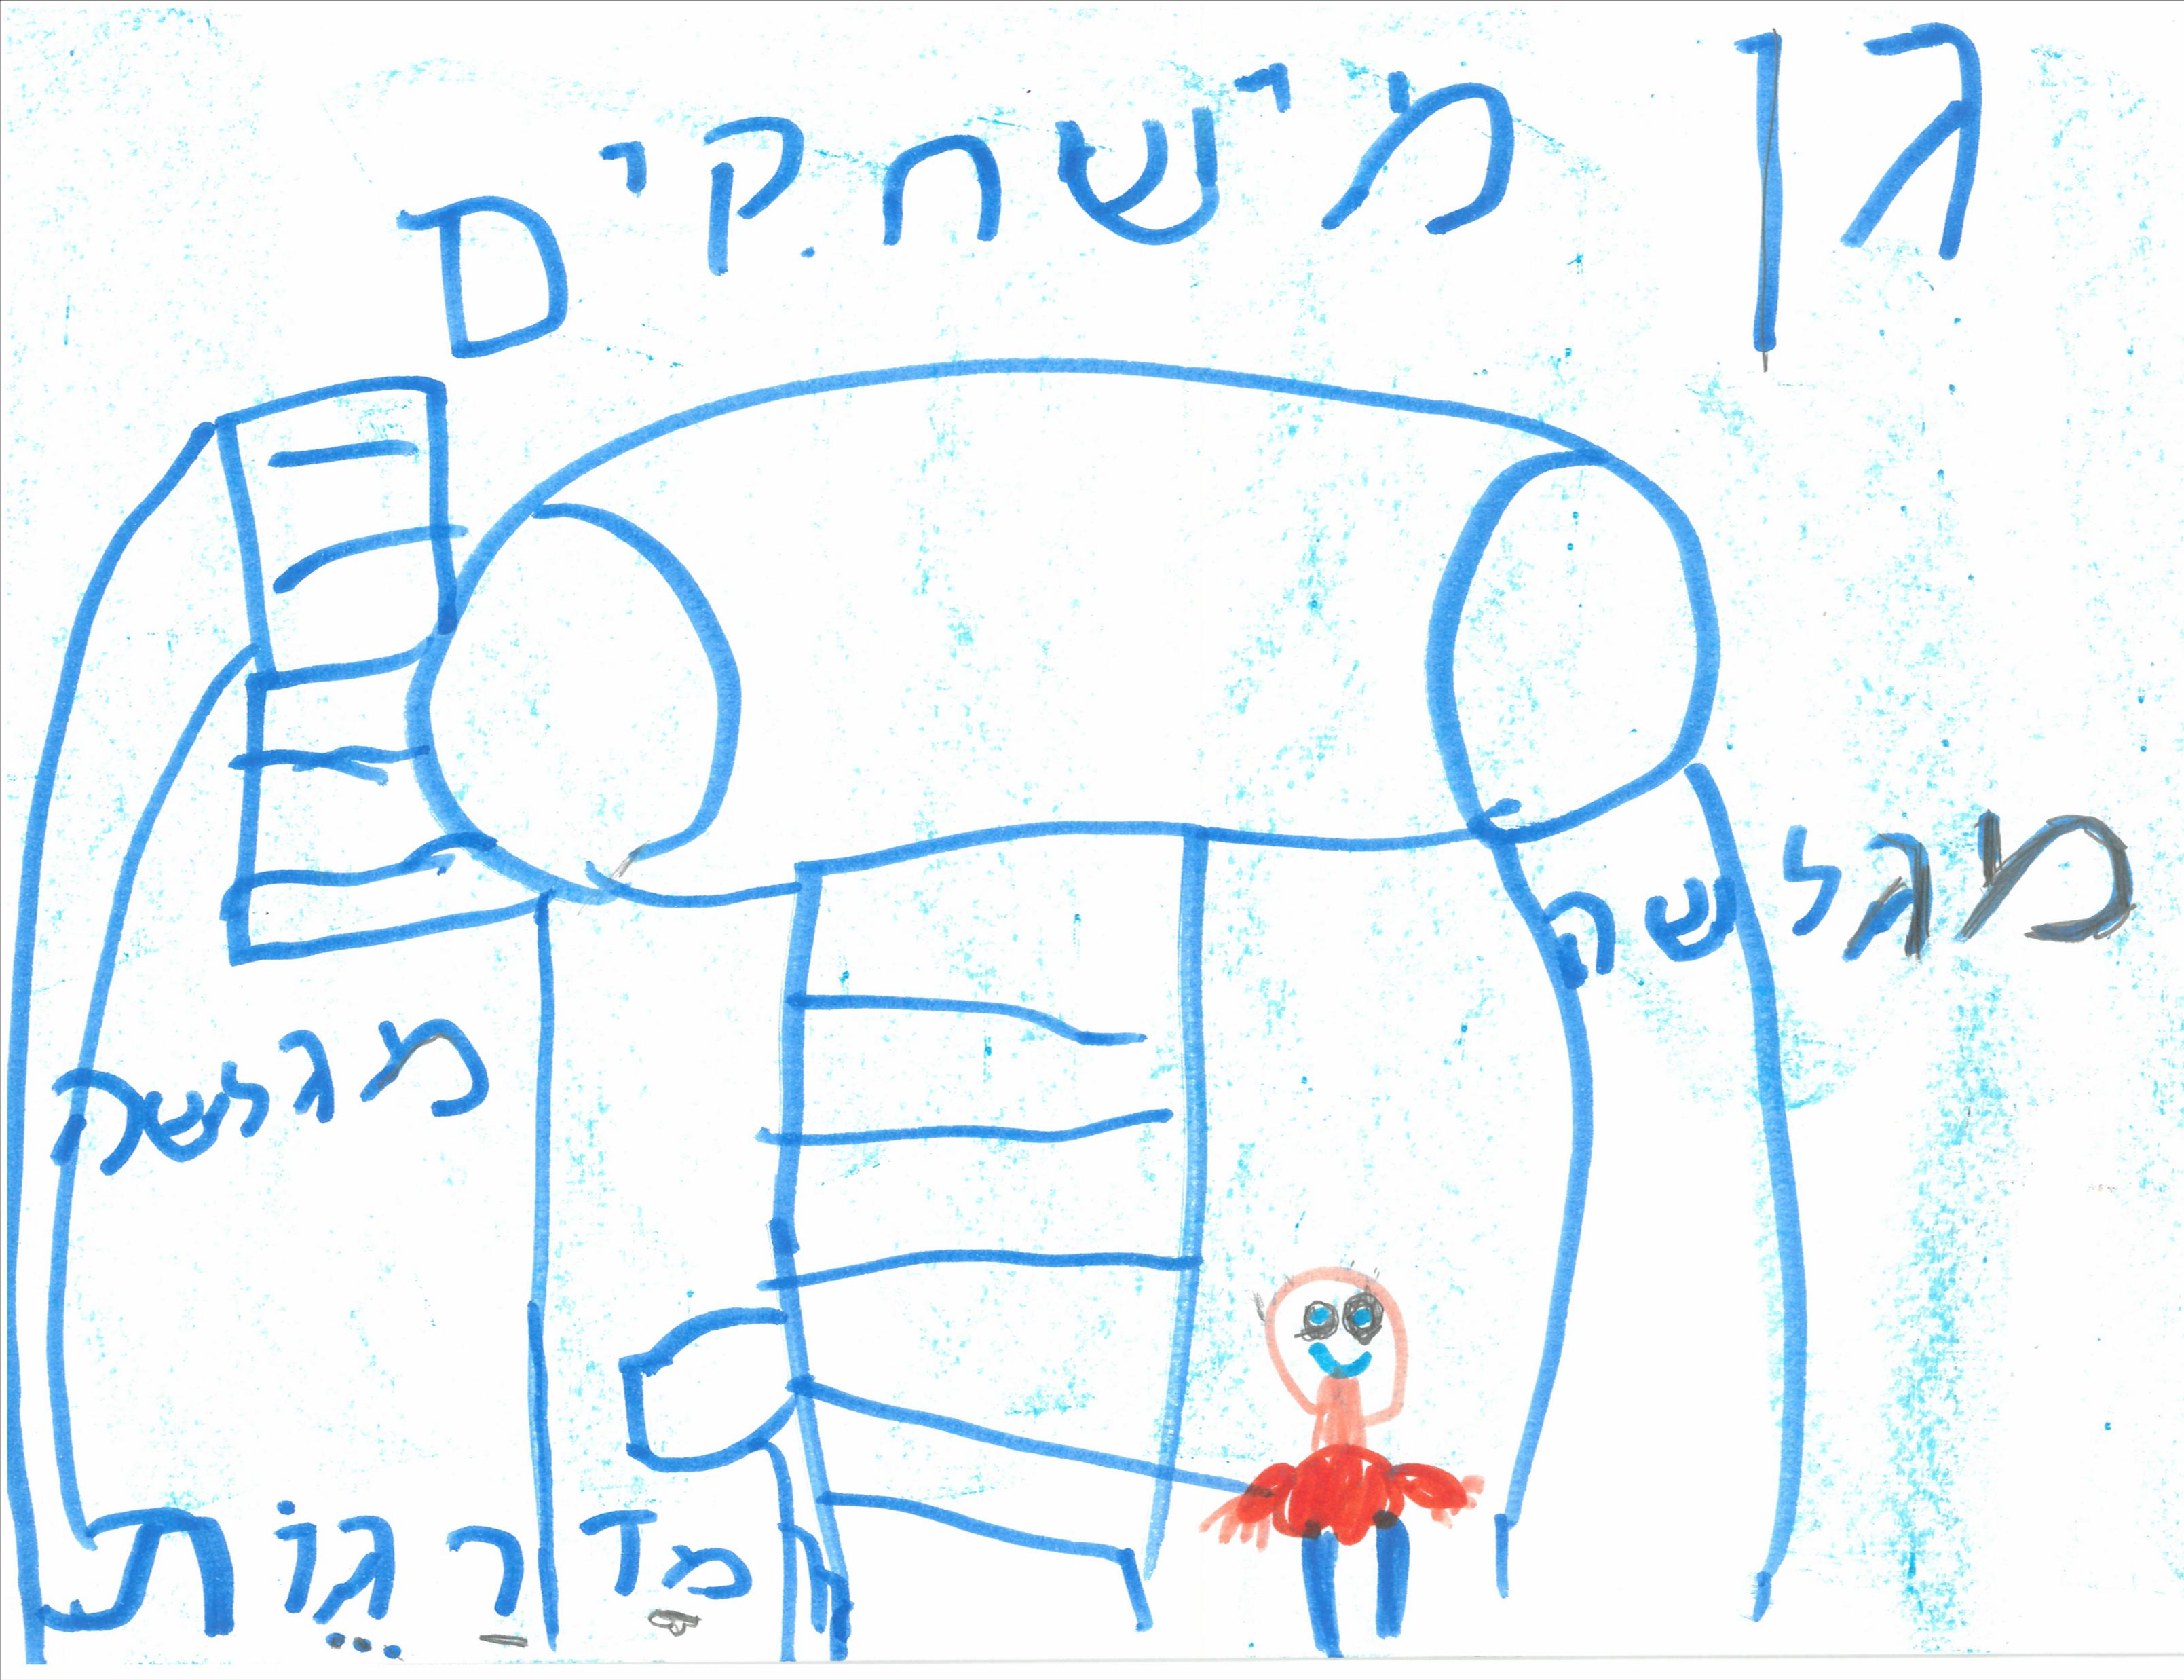 גן מישחקים
מגלשה
מגלשה
מדרגוֹת